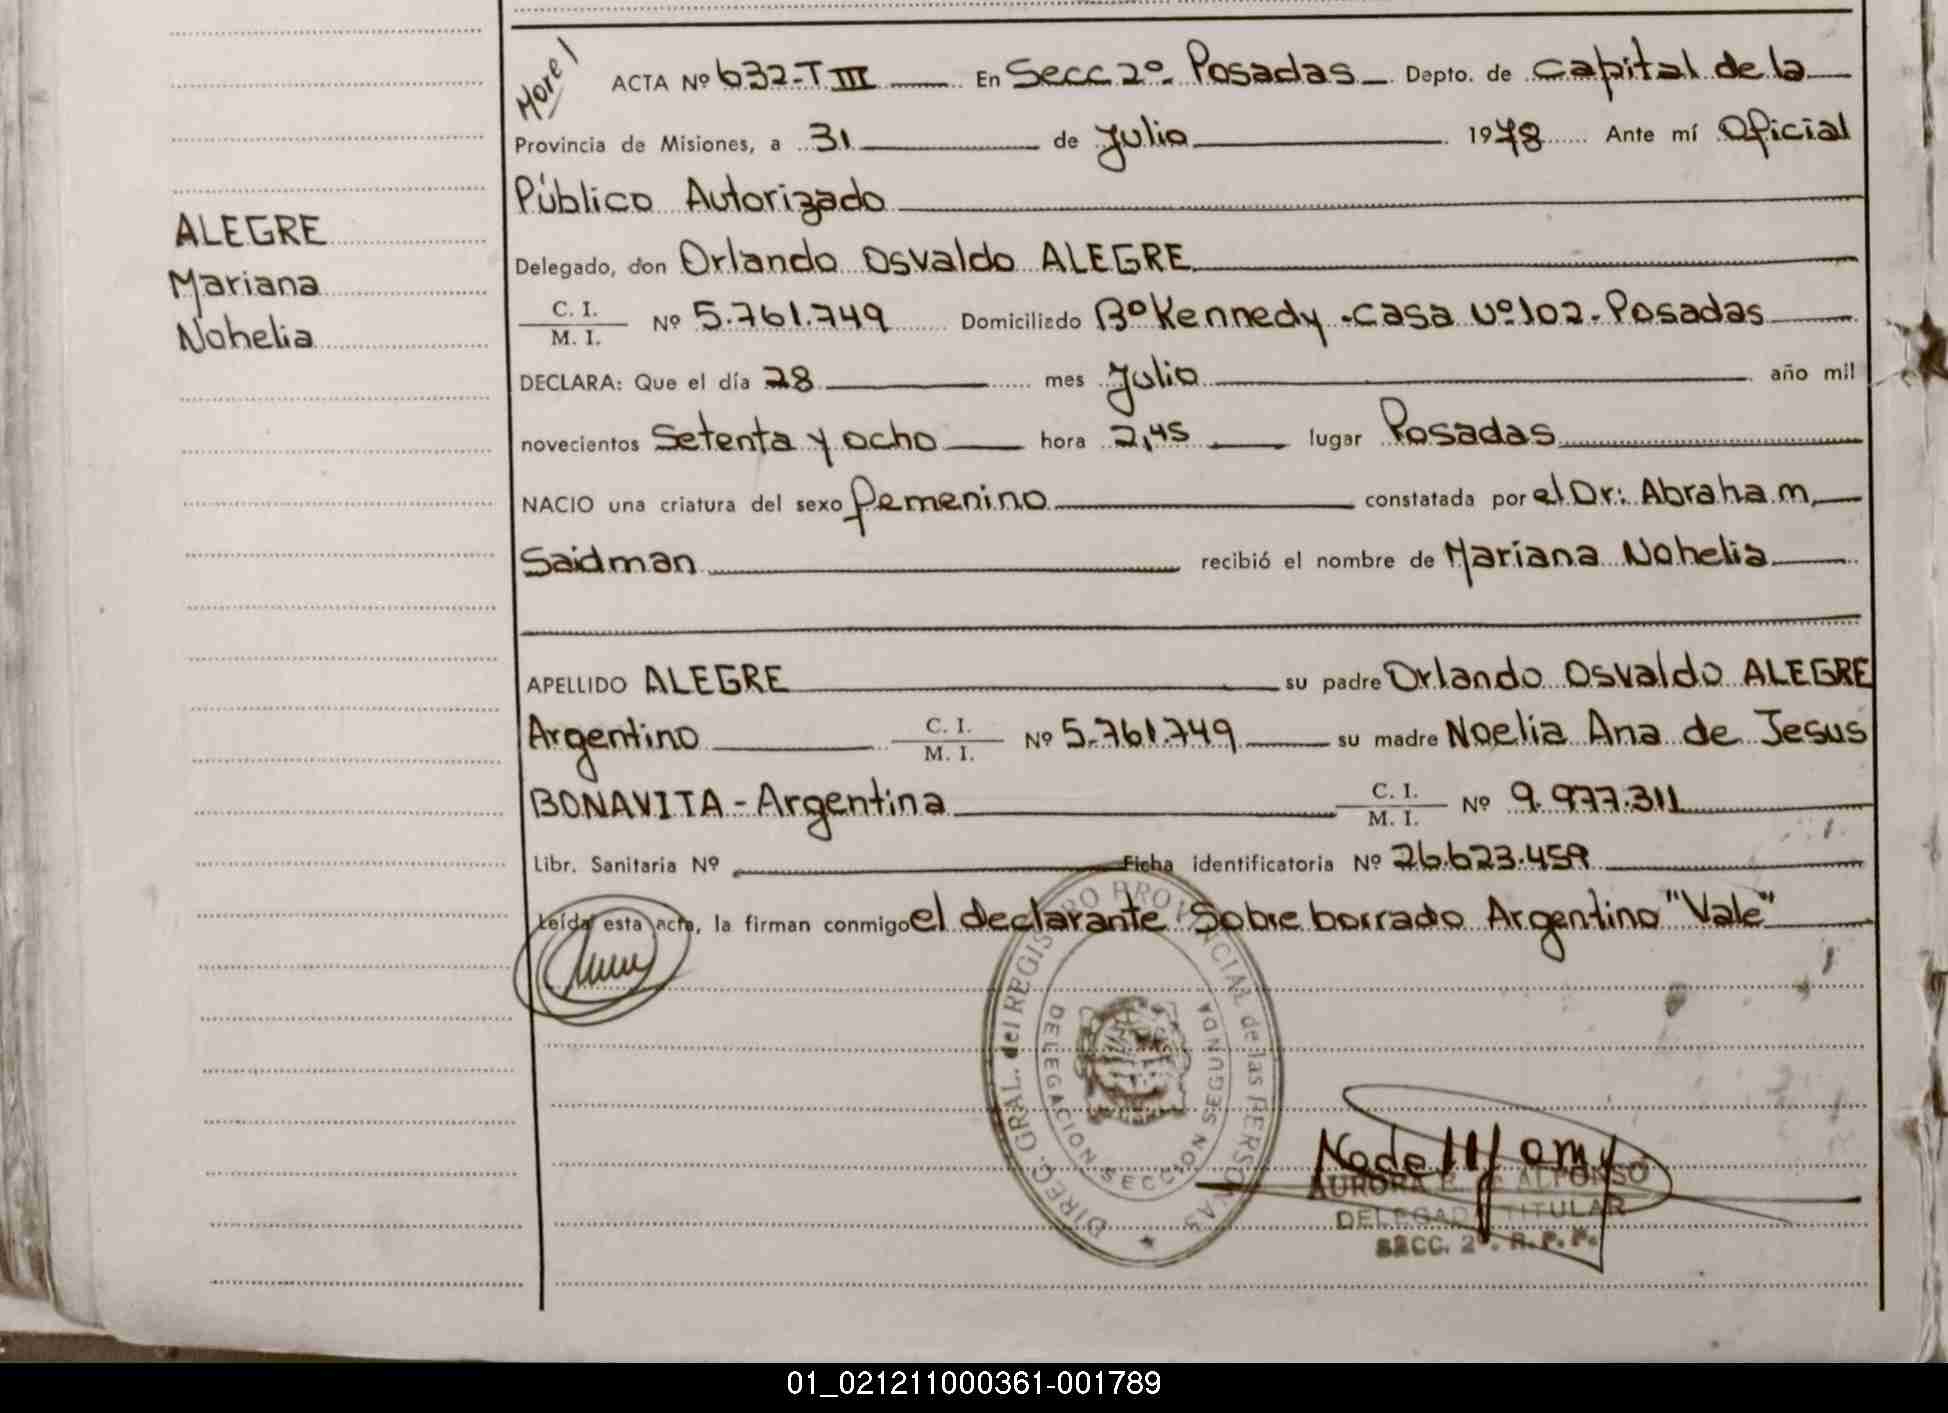 ALEGRE
Mariana
Nohelia
ACTA Nº 632-T III En Secc 2º- Posadas Depto. de Capital de la
Provincia de Misiones, a 31 de Julio 1978 Ante mí Oficial
Público Autorizado
Delegado, don Orlando Osvaldo ALEGRE
C. I.
M. I.
Nº 5.761.749 Domiciliado Bº Kennedy - casa Nº 102 - Posadas
DECLARA: Que el día 28 mes Julio año mil
novecientos Setenta y ocho hora 2,45 lugar Posadas
NACIO una criatura del sexo femenino constatada por el Dr: Abraham
Saidman recibió el nombre de Mariana Nohelia
APELLIDO ALEGRE su padre Orlando Osvaldo ALEGRE
Argentino C. I. M. I. Nº 5.761.749 su madre Noelia Ana de Jesus
BONAVITA - Argentina C. I. M. I. Nº 9.977.311
Libr. Sanitaria Nº Ficha identificatoria Nº 26.623.459
Leída esta acta, la firman conmigo el declarante Sobre borrado Argentino "Vale"
DIREC. GRAL. del REGISTRO PROVINCIAL de las PERSONAS
DELEGACION SECCION SEGUNDA
AURORA ALFONSO
DELEGADA TITULAR
SECC. 2ª. R. P. P.
01_021211000361-001789